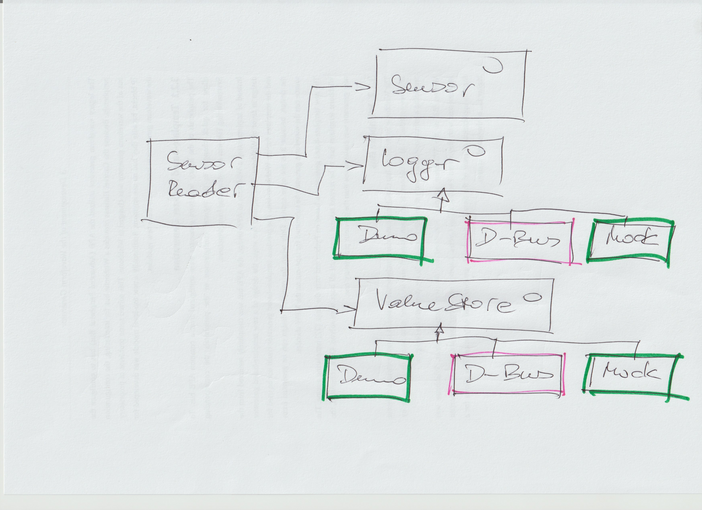 Sensor
Sensor
Reader
Logger
Demo
D-Bus
Mock
ValueStore
Demo
D-Bus
Mock